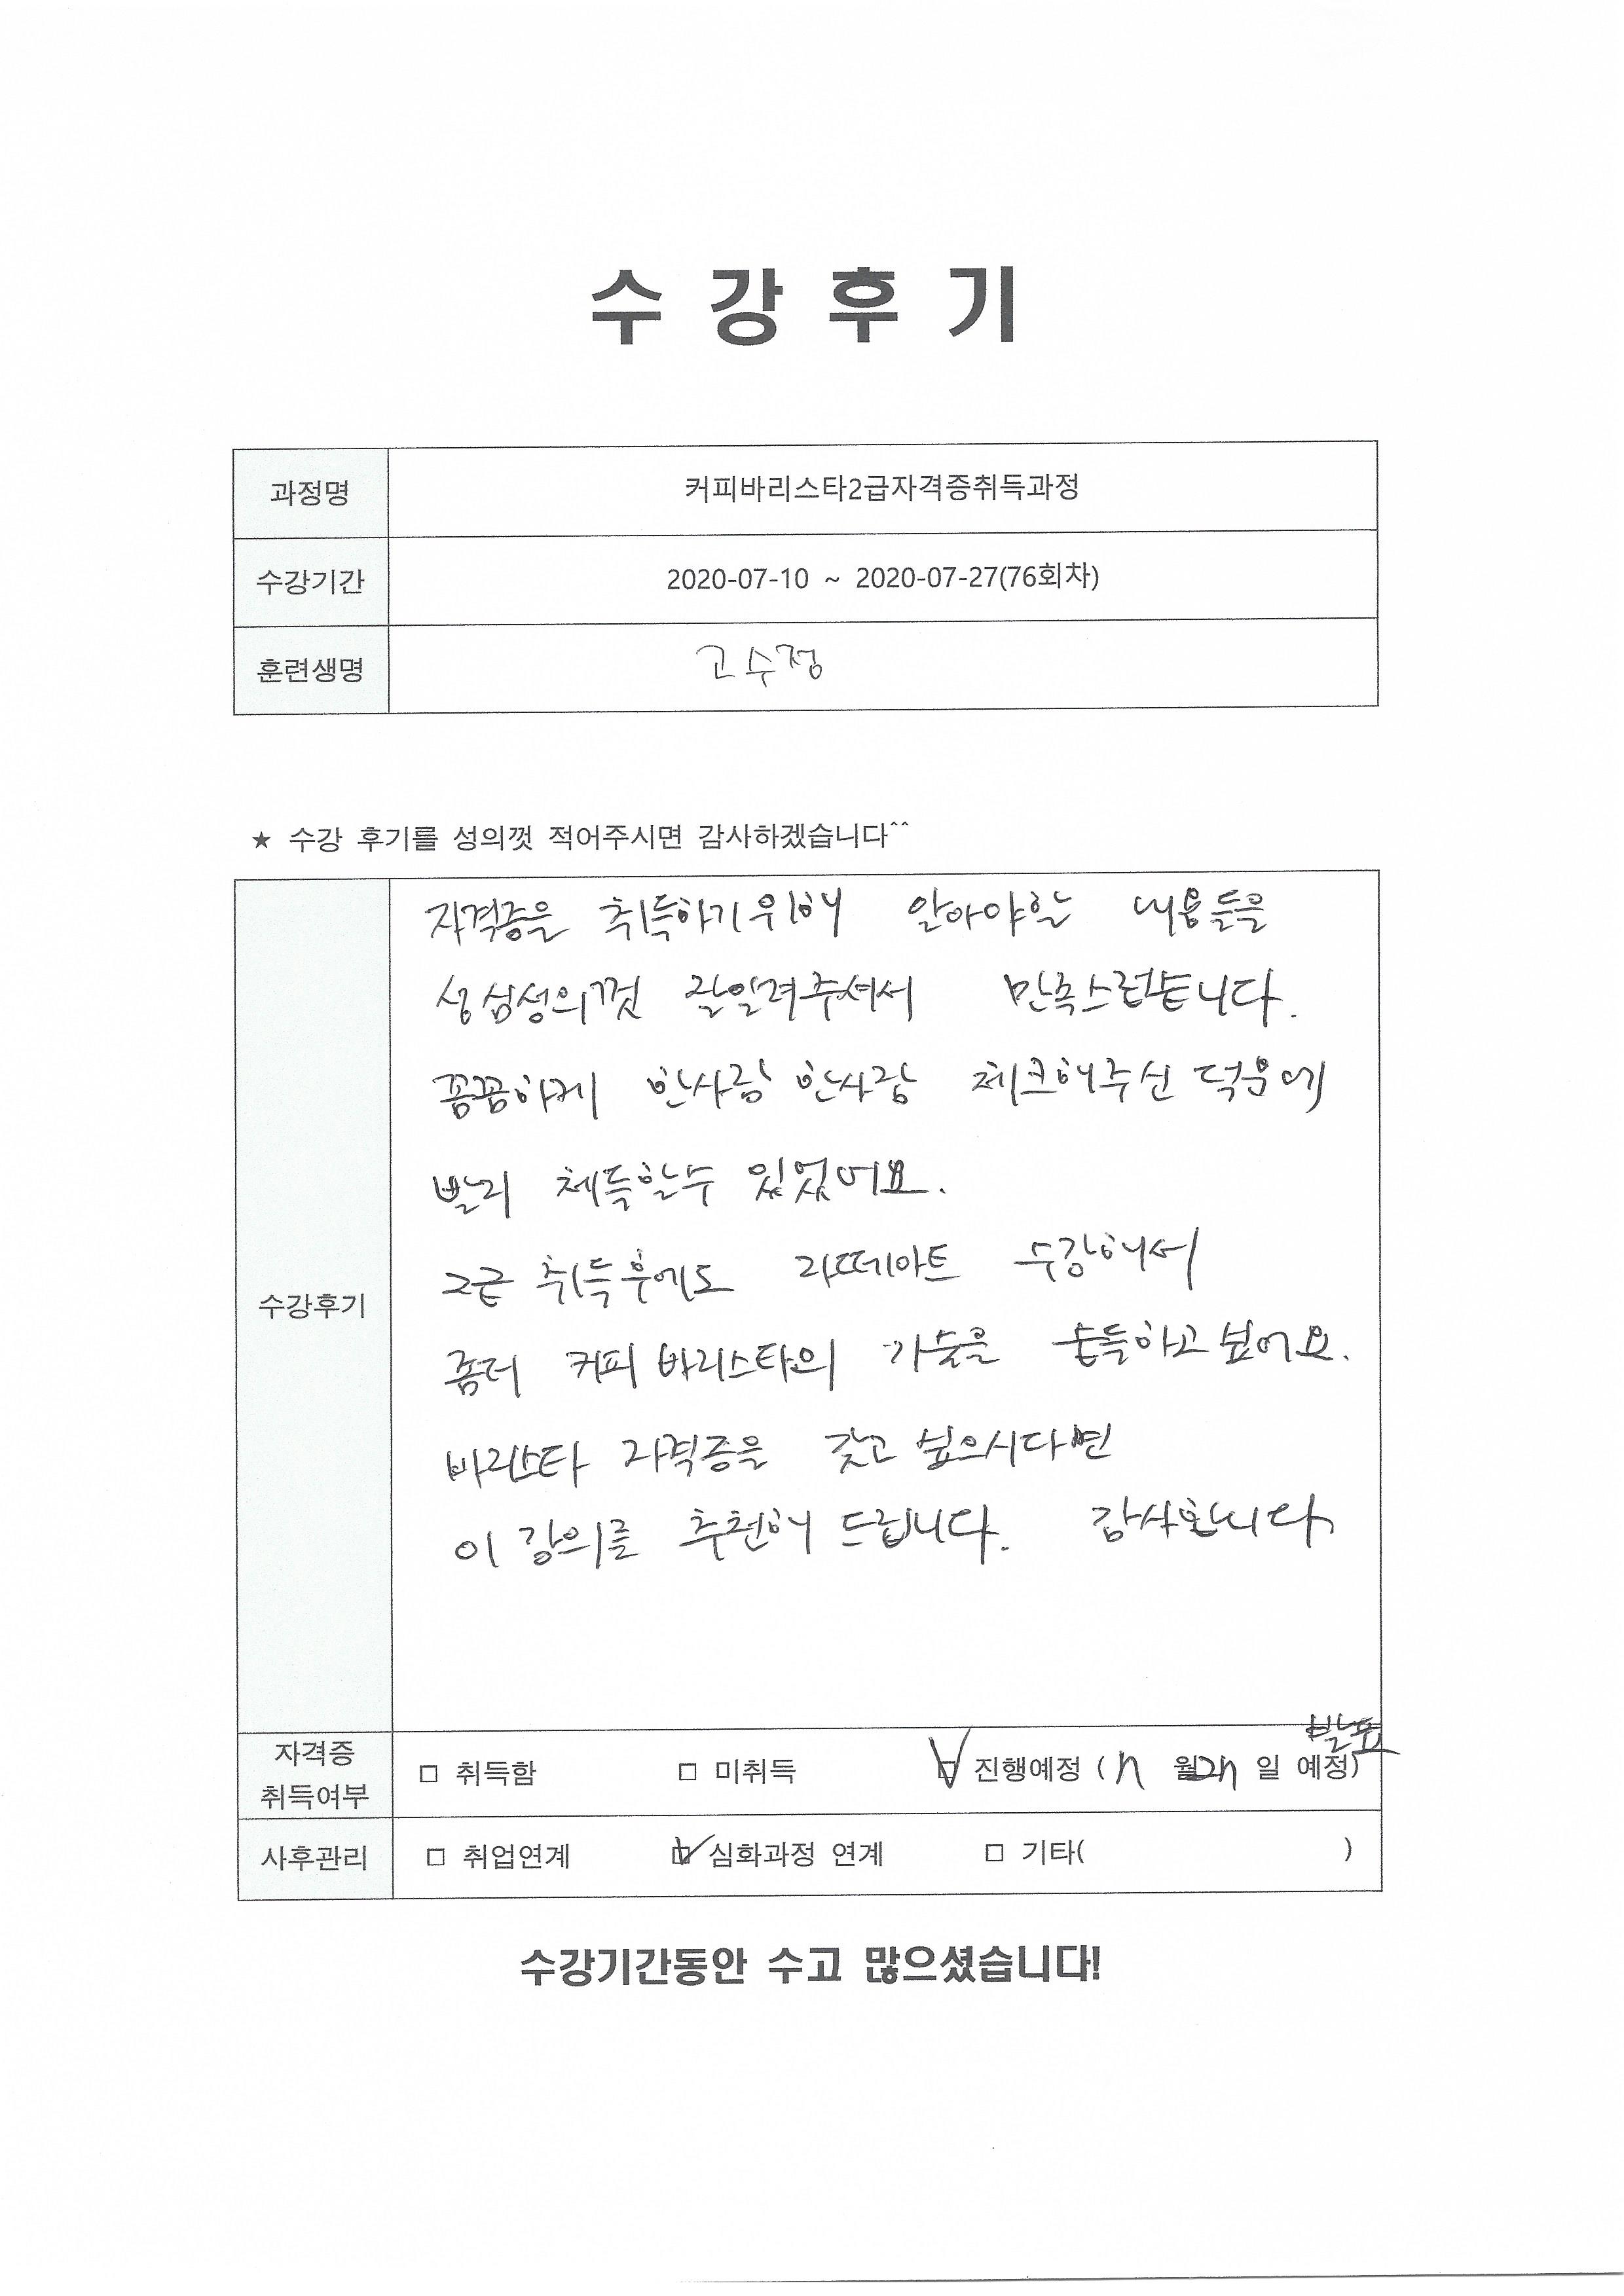 수강후기
과정명 커피바리스타2급자격증취득과정
수강기간 2020-07-10 ~ 2020-07-27(76회차)
훈련생명 고수정
★ 수강 후기를 성의껏 적어주시면 감사하겠습니다^^
수강후기
자격증을 취득하기위해 알아야할 내용들을
성심성의껏 잘알려주셔서 만족스럽습니다.
꼼꼼하게 한사람 한사람 체크해주신 덕분에
빨리 체득할수 있었어요.
2급 취득후에도 라떼아트 수강해서
좀더 커피 바리스타의 기술을 습득하고 싶어요.
바리스타 자격증을 갖고 싶으시다면
이 강의를 추천해 드립니다. 감사합니다
발표
자격증 취득여부 □ 취득함 □ 미취득 □ 진행예정 (7 월 27 일 예정)
사후관리 □ 취업연계 □ 심화과정 연계 □ 기타( )
수강기간동안 수고 많으셨습니다!